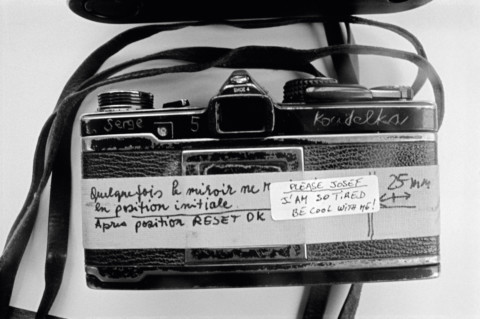 SHOE 4
Serge 5 Koudelka
Quelquefois le miroir ne
en position initiale.
Après position RESET OK
PLEASE JOSEF
I'AM SO TIRED
BE COOL WITH ME!
25 mm